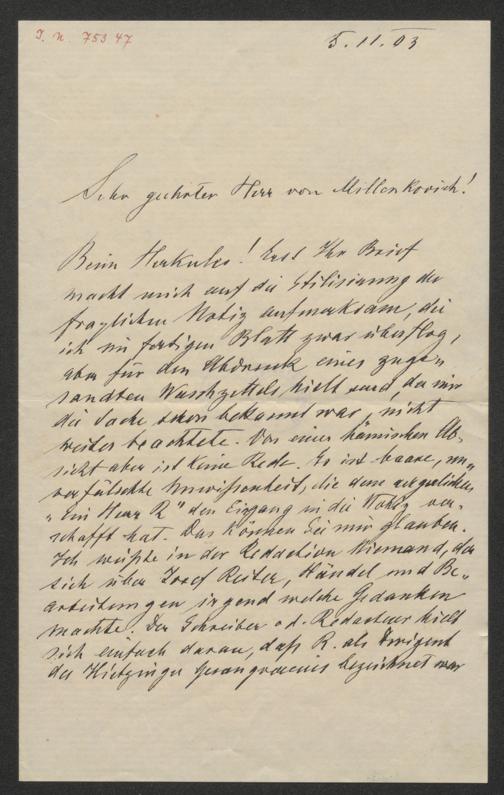 I. N. 75347
5.11.03
Sehr geehrter Herr von Millenkovich!
Beim Herkules! Erst Ihr Brief
macht mich auf die Stilisierung der
fraglichen Notiz aufmerksam, die
ich im fertigen Blatt zwar überflog,
aber für den Abdruck eines zuge„
sandten Waschzettels hielt und, da mir
die Sache schon bekannt war, nicht
weiter beachtete. Von einer hämischen Ab„
sicht aber ist keine Rede. Es ist baare, un„
verfälschte Unwissenheit, die dem
„Ein Herr R“ den Eingang in die Notiz ver„
schafft hat. Das können Sie mir glauben.
Ich wüßte in der Redaction Niemand, der
sich über Josef Reiter, Händel und Be„
arbeitungen irgend welche Gedanken
machte. Der Schreiber od. Redacteur hielt
sich einfach daran, daß R. als Dirigent
des Hietzinger Gesangvereins bezeichnet war